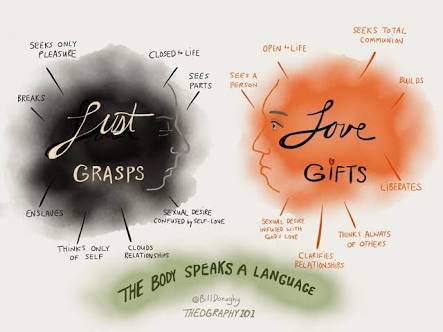 SEEKS ONLY
PLEASURE
CLOSED to LIFE
SEES
PARTS
BREAKS
Lust
GRASPS
ENSLAVES
THINKS ONLY
OF SELF
CLOUDS
RELATIONSHIPS
SEXUAL DESIRE
CONFUSED by SELF-LOVE
SEEKS TOTAL
COMMUNION
OPEN to LIFE
SEES A
PERSON
BUILDS
Love
GIFTS
LIBERATES
SEXUAL DESIRE
INFUSED WITH
GOD'S LOVE
CLARIFIES
RELATIONSHIPS
THINKS ALWAYS
OF OTHERS
THE BODY SPEAKS A LANGUAGE
@BillDonaghy
THEOGRAPHY101